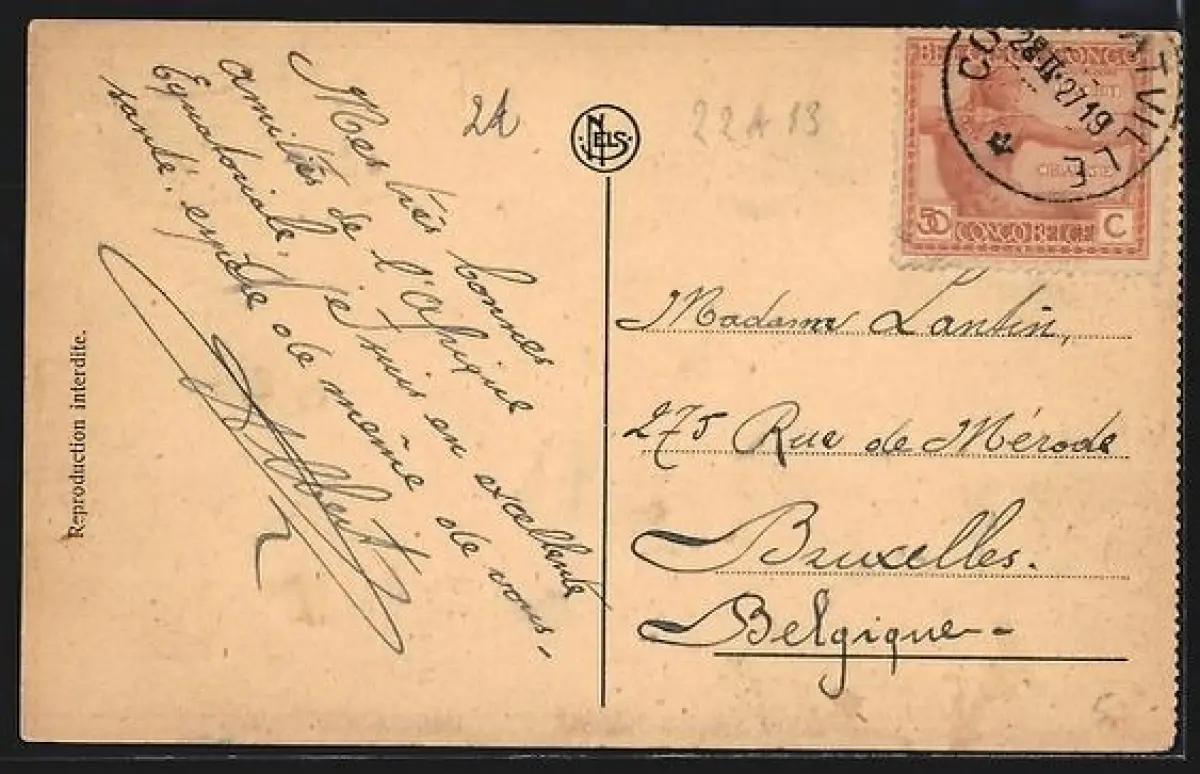 Mes très bonnes
amitiés de l'Afrique
Equatoriale. je suis en excellente
santé. espère de même de vous-
Albert
Reproduction interdite.
21
NELS
22 A 13
CO ATVILLE
28·II·27 19
BELGISCH CONGO
50 C
CONGO BELGE
Madame Lantin,
275 Rue de Mérode
Bruxelles.
Belgique-